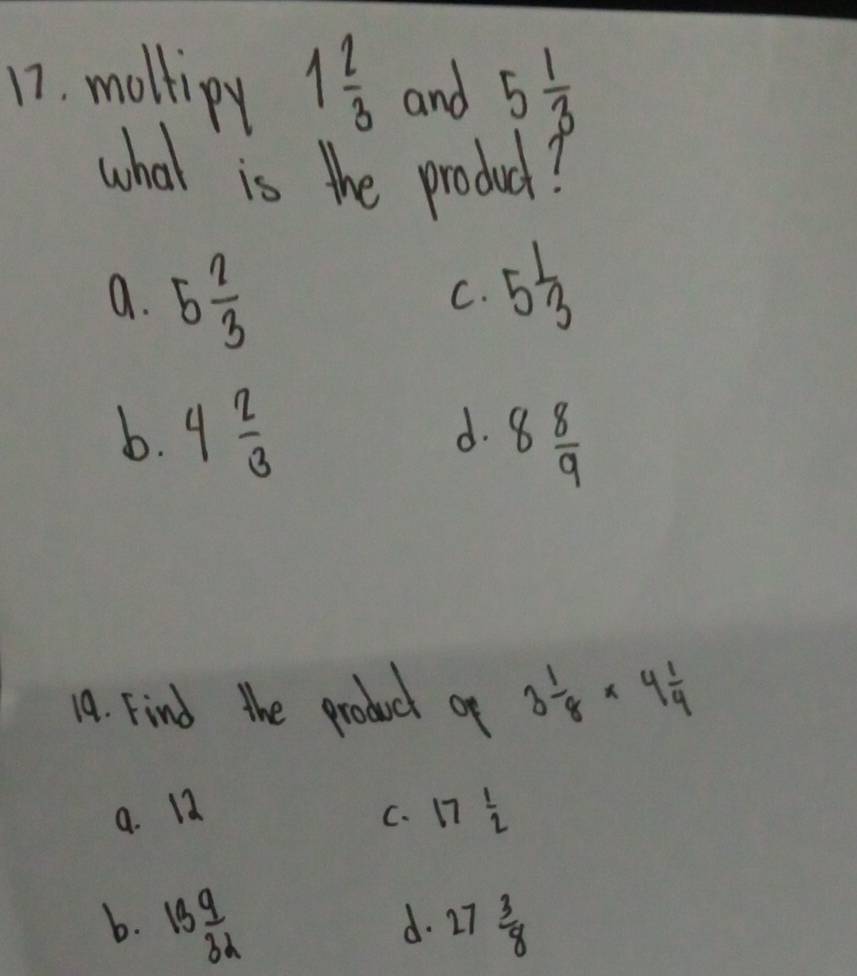 17. moltipy 1 2/3 and 5 1/3
what is the product?
a. 5 2/3 c. 5 1/3
b. 4 2/3 d. 8 8/9
19. Find the product of 3 1/8 x 4 1/4
a. 12 c. 17 1/2
b. 13 9/32 d. 27 3/8